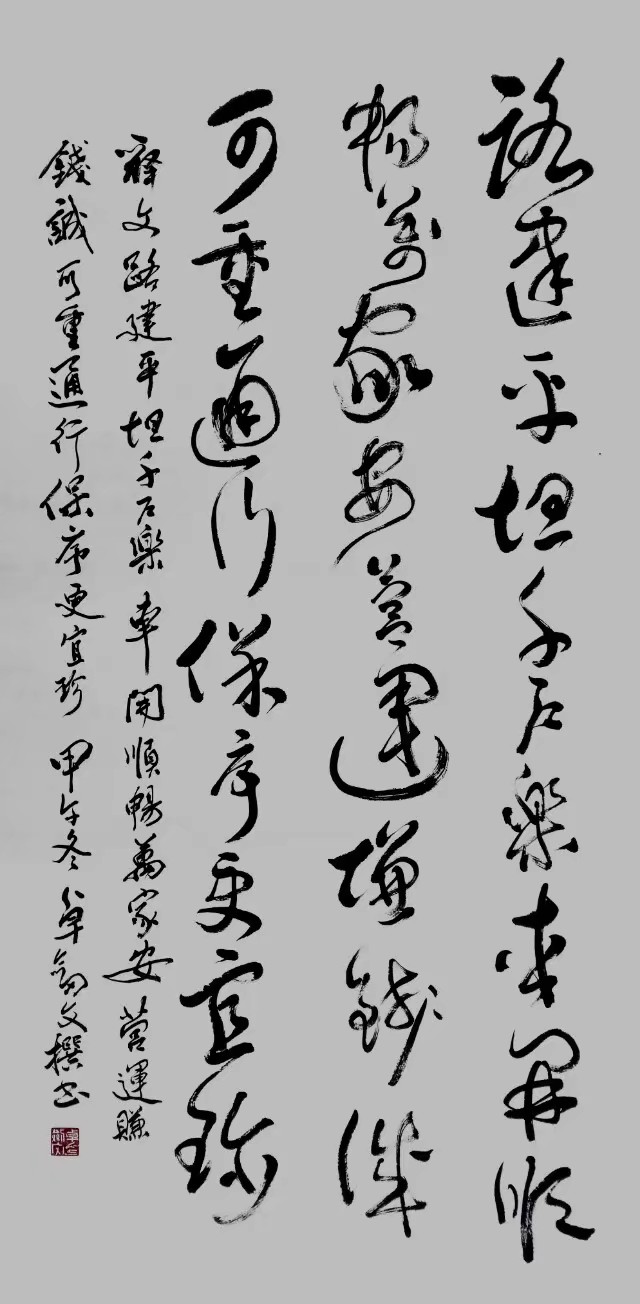 路建平坦千户樂車開順
暢萬家安營運賺錢誠
可重通行保序更宜珍
釋文路建平坦千户樂 車開順暢萬家安 營運賺
錢誠可重通行保序更宜珍 甲午冬 卓劍文撰书